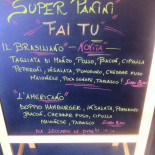 SUPER PANINI
FAI TU
IL BRASILIANO - NOVITÀ
TAGLIATA DI MANZO, POLLO, BACON, CIPOLLA
PEPERONI, INSALATA, POMODORO, CHEDDAR FUSO
MAIONESE, TABASCO!
L'AMERICANO
DOPPIO HAMBURGER, INSALATA, POMODORO
BACON, CHEDDAR FUSO, CIPOLLA
MAIONESE, TABASCO